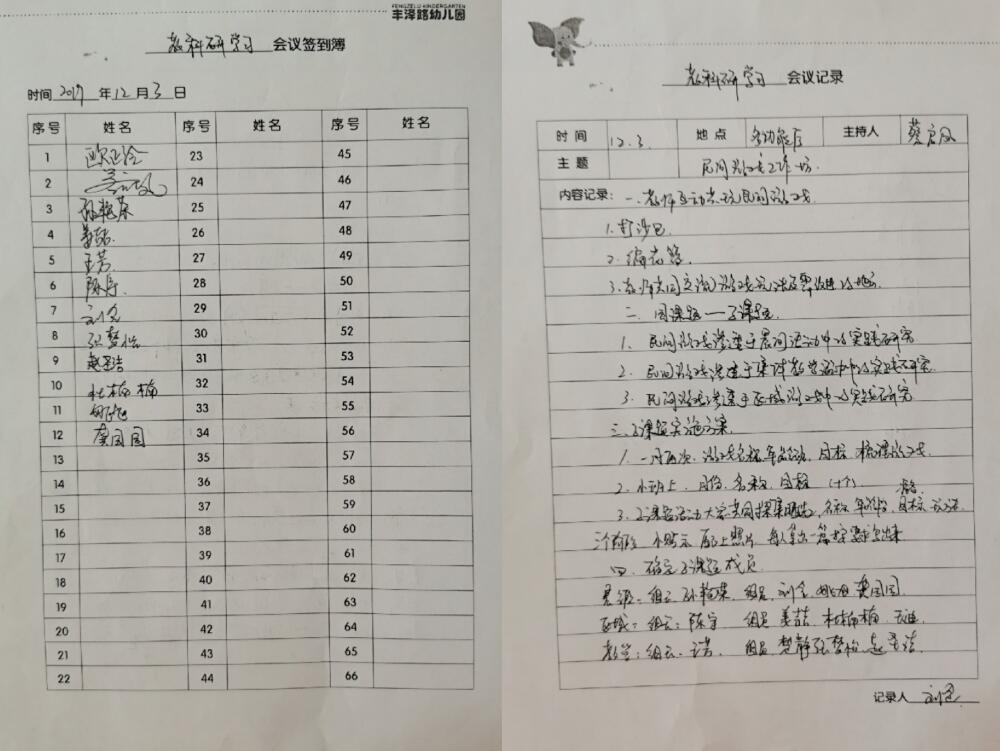 FENGZELU KINDERGARTEN
丰泽路幼儿园
教科研学习 会议签到簿
时间 2019 年 12 月 3 日
序号 姓名 序号 姓名 序号 姓名
1 23 45
2 24 46
3 孙艳荣 25 47
4 姜喆 26 48
5 王芳 27 49
6 陈宇 28 50
7 29 51
8 张梦怡 30 52
9 31 53
10 杜楠楠 32 54
11 33 55
12 龚园园 34 56
13 35 57
14 36 58
15 37 59
16 38 60
17 39 61
18 40 62
19 41 63
20 42 64
21 43 65
22 44 66
教科研学习 会议记录
时间 12.3. 地点 多功能厅 主持人
主题 民间游戏工作坊
内容记录: 一、教师互动共玩民间游戏
1. 打沙包
2. 编花篮
3. 教师共同交流游戏玩法及需改进的地方
二、园课题一子课题
1. 民间游戏渗透于晨间活动中的实践研究
2. 民间游戏渗透于集体教学活动中的实践研究
3. 民间游戏渗透于区域游戏中的实践研究
三、子课题实施方案
1. 一月两次 游戏名称 年龄班、目标、梳理游戏
2. 小班上、月份、名称、目标 (十个)
3. 子课题活动大家共同探索 名称 年龄段 目标 玩法
小贴示 配上照片
四、确定子课题成员
晨间: 组长 孙艳荣 组员 龚园园
区域: 组长: 陈宇 组员 姜喆 杜楠楠
教学: 组长 王芳 组员
记录人